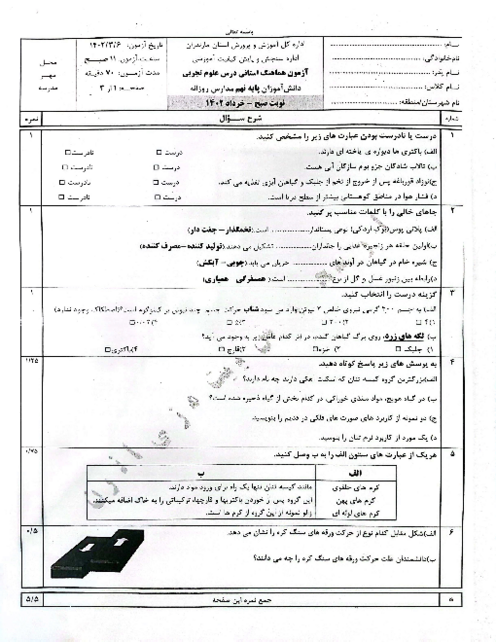 باسمه تعالی
نام:
نام‌خانوادگی:
نام پدر:
نام کلاس:
نام شهرستان/منطقه:
اداره کل آموزش و پرورش استان مازندران
اداره سنجش و پایش کیفیت آموزشی
آزمون هماهنگ استانی درس علوم تجربی
دانش‌آموزان پایه نهم مدارس روزانه
نوبت صبح - خرداد ۱۴۰۲
تاریخ آزمون: ۱۴۰۲/۳/۶
ساعت آزمون: ۱۱ صبح
مدت آزمون: ۷۰ دقیقه
صفحه ۱ از ۳
محل
مهر
مدرسه
شماره شرح سؤال نمره
۱ درست یا نادرست بودن عبارت های زیر را مشخص کنید. ۱
الف) باکتری ها دیواره ی یاخته ای دارند. درست □ نادرست □
ب) تالاب شادگان جزو بوم سازگان آبی هست. درست □ نادرست □
ج) نوزاد قورباغه پس از خروج از تخم از جلبک و گیاهان آبزی تغذیه می کند. درست □ نادرست □
د) فشار هوا در مناطق کوهستانی بیشتر از سطح دریا است. درست □ نادرست □
۲ جاهای خالی را با کلمات مناسب پر کنید. ۱
الف) پلاتی پوس (نوک اردکی) نوعی پستاندار .............. است. (تخمگذار - جفت دار)
ب) اولین حلقه هر زنجیره غذایی را جانداران .............. تشکیل می دهند. (تولید کننده - مصرف کننده)
ج) شیره خام در گیاهان در آوند های .............. جریان می یابد. (چوبی - آبکش)
د) رابطه بین زنبور عسل و گل از نوع .............. است. (همسفرگی - همیاری)
۳ گزینه درست را انتخاب کنید. ۱
الف) به جسم ۲۰۰ گرمی نیروی خالص ۲ نیوتن وارد می شود شتاب حرکت جسم چند نیوتن بر کیلوگرم است؟ (اصطکاک وجود ندارد)
ب) لکه های زرد، روی برگ گیاهان گندم، در اثر کدام عامل زیر به وجود می آید؟
۱) جلبک □ ۲) خزه □ ۳) قارچ □ ۴) باکتری □
۴ به پرسش های زیر پاسخ کوتاه دهید. ۱/۲۵
الف) بزرگترین گروه کیسه تنان که اسکلت آهکی دارند چه نام دارند؟
ب) در گیاه هویج، مواد مغذی خوراکی، در کدام بخش از گیاه ذخیره شده است؟
ج) دو نمونه از کاربرد های صورت های فلکی در قدیم را بنویسید.
د) یک مورد از کاربرد نرم تنان را بنویسید.
۵ هریک از عبارت های ستون الف را به ب وصل کنید. ۰/۷۵
الف ب
کرم های حلقوی مانند کیسه تنان تنها یک راه برای ورود مواد دارند.
کرم های پهن این گروه پس از خوردن باکتریها و قارچها، ترکیباتی را به خاک اضافه میکنند.
کرم های لوله ای زالو نمونه از این گروه از کرم ها است.
۶ الف) شکل مقابل کدام نوع از حرکت ورقه های سنگ کره را نشان می دهد. ۰/۵
ب) دانشمندان علت حرکت ورقه های سنگ کره را چه می دانند؟
جمع نمره این صفحه ۵/۵